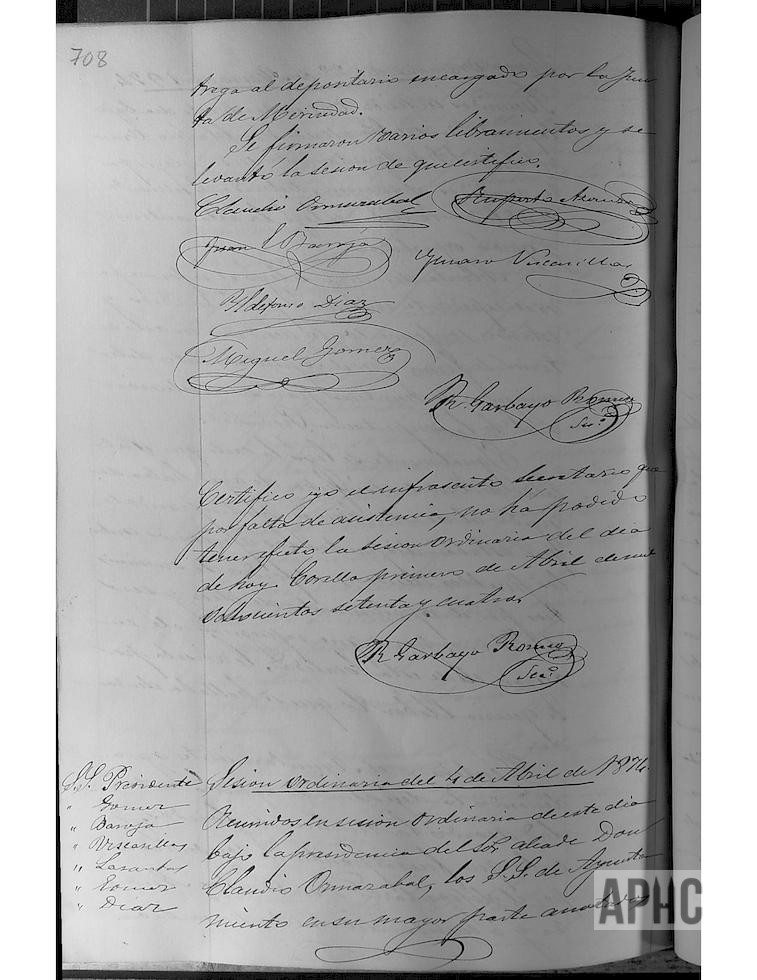 708
trega al depositario encargado por la Jun
ta de Merindad.
Se firmaron varios libramientos y se
levantó la sesion de que certifico.
Claudio Ormazabal Ruperto
Juan Baroja
Genaro Viscasillas
Yldefonso Diaz
Miguel Gomez
R. Garbayo
Sec.º
Certifico yo el infrascrito Secretario que
por falta de asistencia, no há podido
tener efecto la sesion ordinaria del dia
de hoy. Corella primero de Abril de mil
ochocientos setenta y cuatro.
R. Garbayo
Sec.º
S.S. Presidente
" Gomez
" Baroja
" Viscasillas
"
"
" Diaz
Sesion ordinaria del 4 de Abril de 1874.
Reunidos en sesion ordinaria de este dia
bajo la presidencia del Sor. alcalde Don
Claudio Ormazabal, los S.S. de Ayunta
miento en su mayor parte anotados
APHC